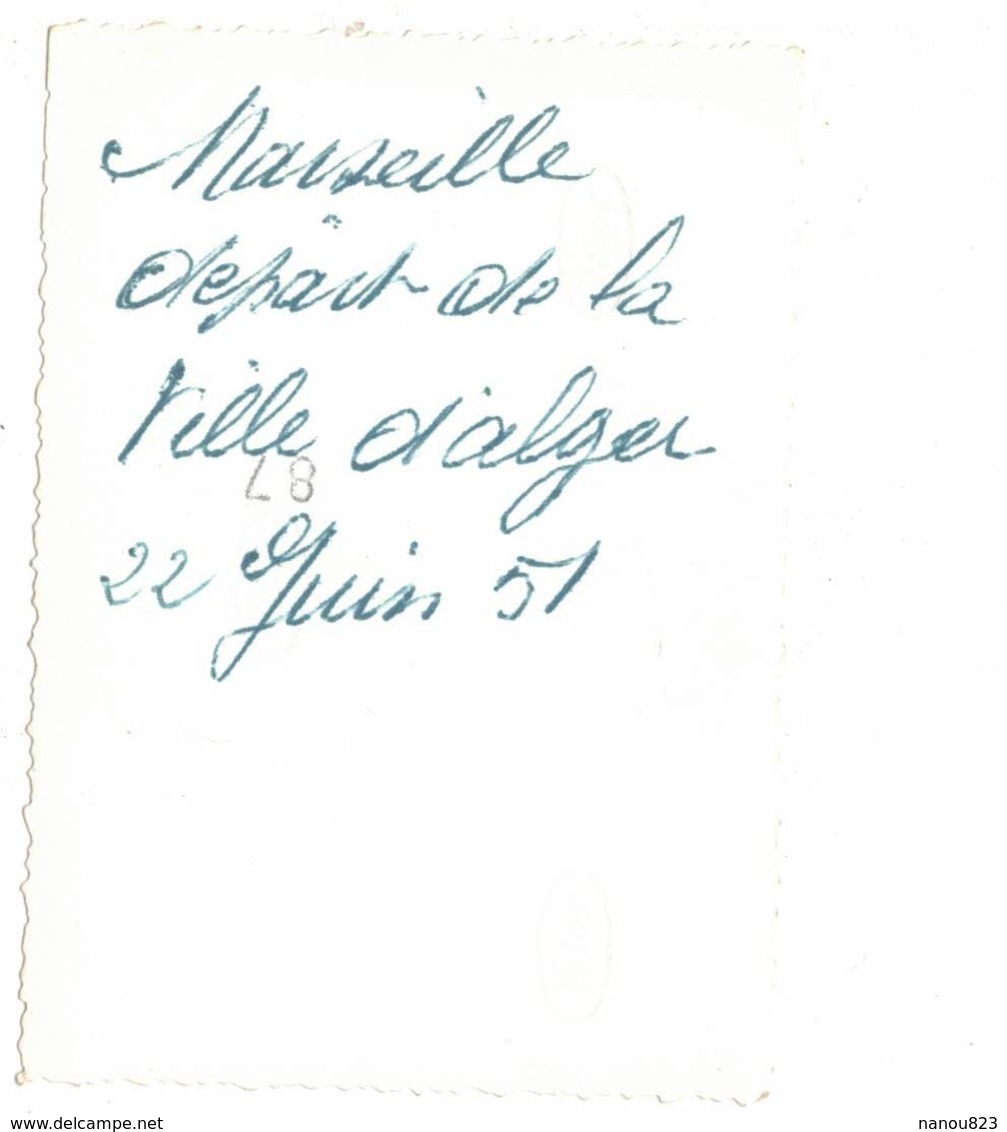 Marseille
départ de la
Ville d'alger
87
22 Juin 51
www.delcampe.net
nanou823